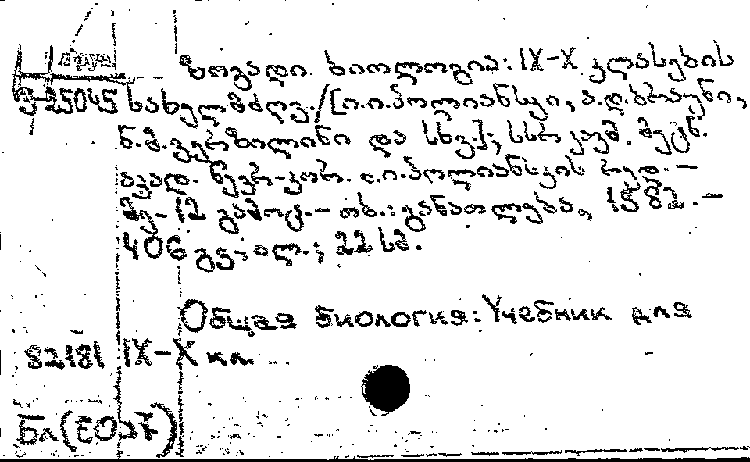 ზოგადი ბიოლოგია: IX-X კლასების
სახელმძღვ./[ი.ი.პოლიანსკი, ა.დ.ბრაუნი,
ნ.მ.ვერზილინი და სხვ.]; სსრ კავშ. მეცნ.
აკად. წევრ-კორ. ი.ი.პოლიანსკის რედ.-
მე-12 გამოც.- თბ.: განათლება, 1982.-
406 გვ.: ილ.; 22 სმ.
Общая биология: Учебник для
82181 IX-X кл.